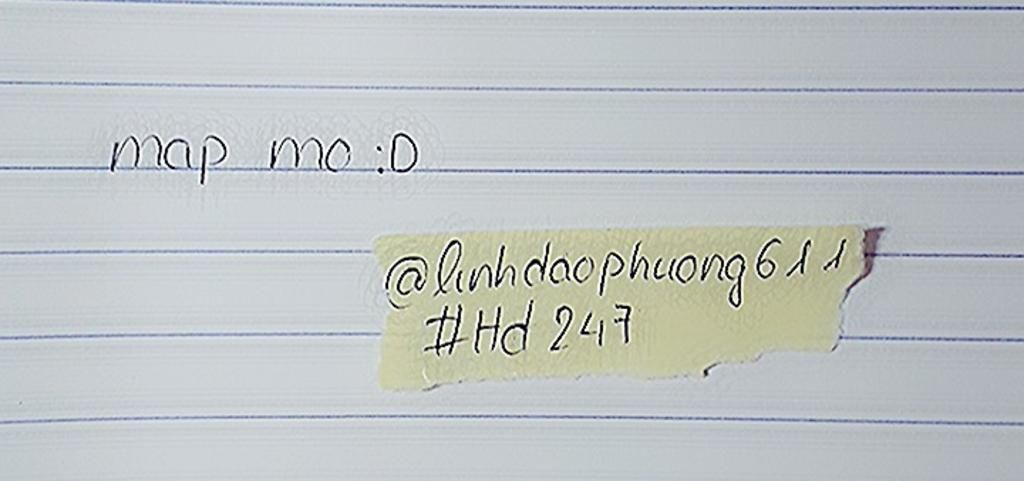 map mo :D
@linhdaophuong611
#Hd 247